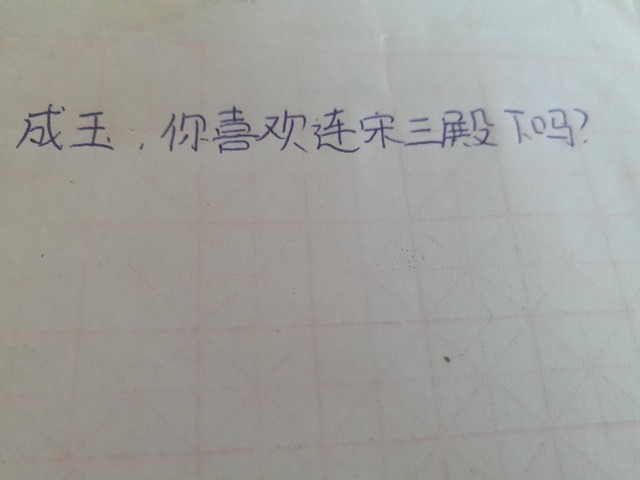 成玉，你喜欢连宋三殿下吗?